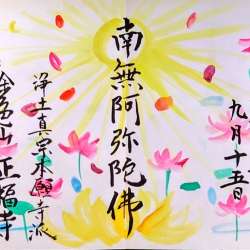 九月十五日
南無阿弥陀佛
浄土真宗本願寺派
金色山 正福寺